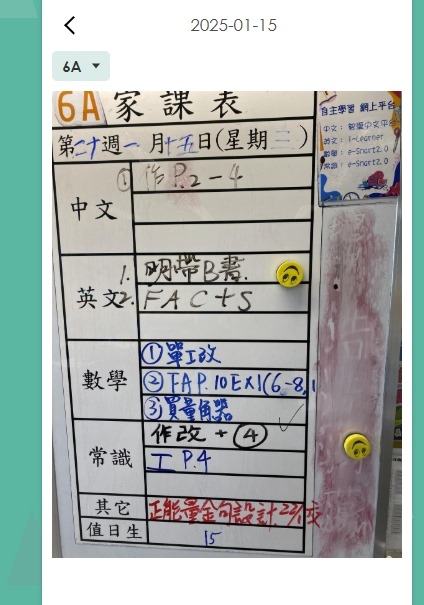 2025-01-15
6A
6A 家課表
第二十週一月十五日(星期三)
中文
① 作P.2-4
英文
1. 明帶B書.
2. FAC+S
數學
①單工改
②FA P.10 EX1(6-8,1
③買量角器
常識
作改 + ④
工 P.4
其它
正能量金句設計 22/1交
值日生
15
自主學習 網上平台
中文:
英文: i-Learner
數學: e-Smart2.0
常識: e-Smart2.0